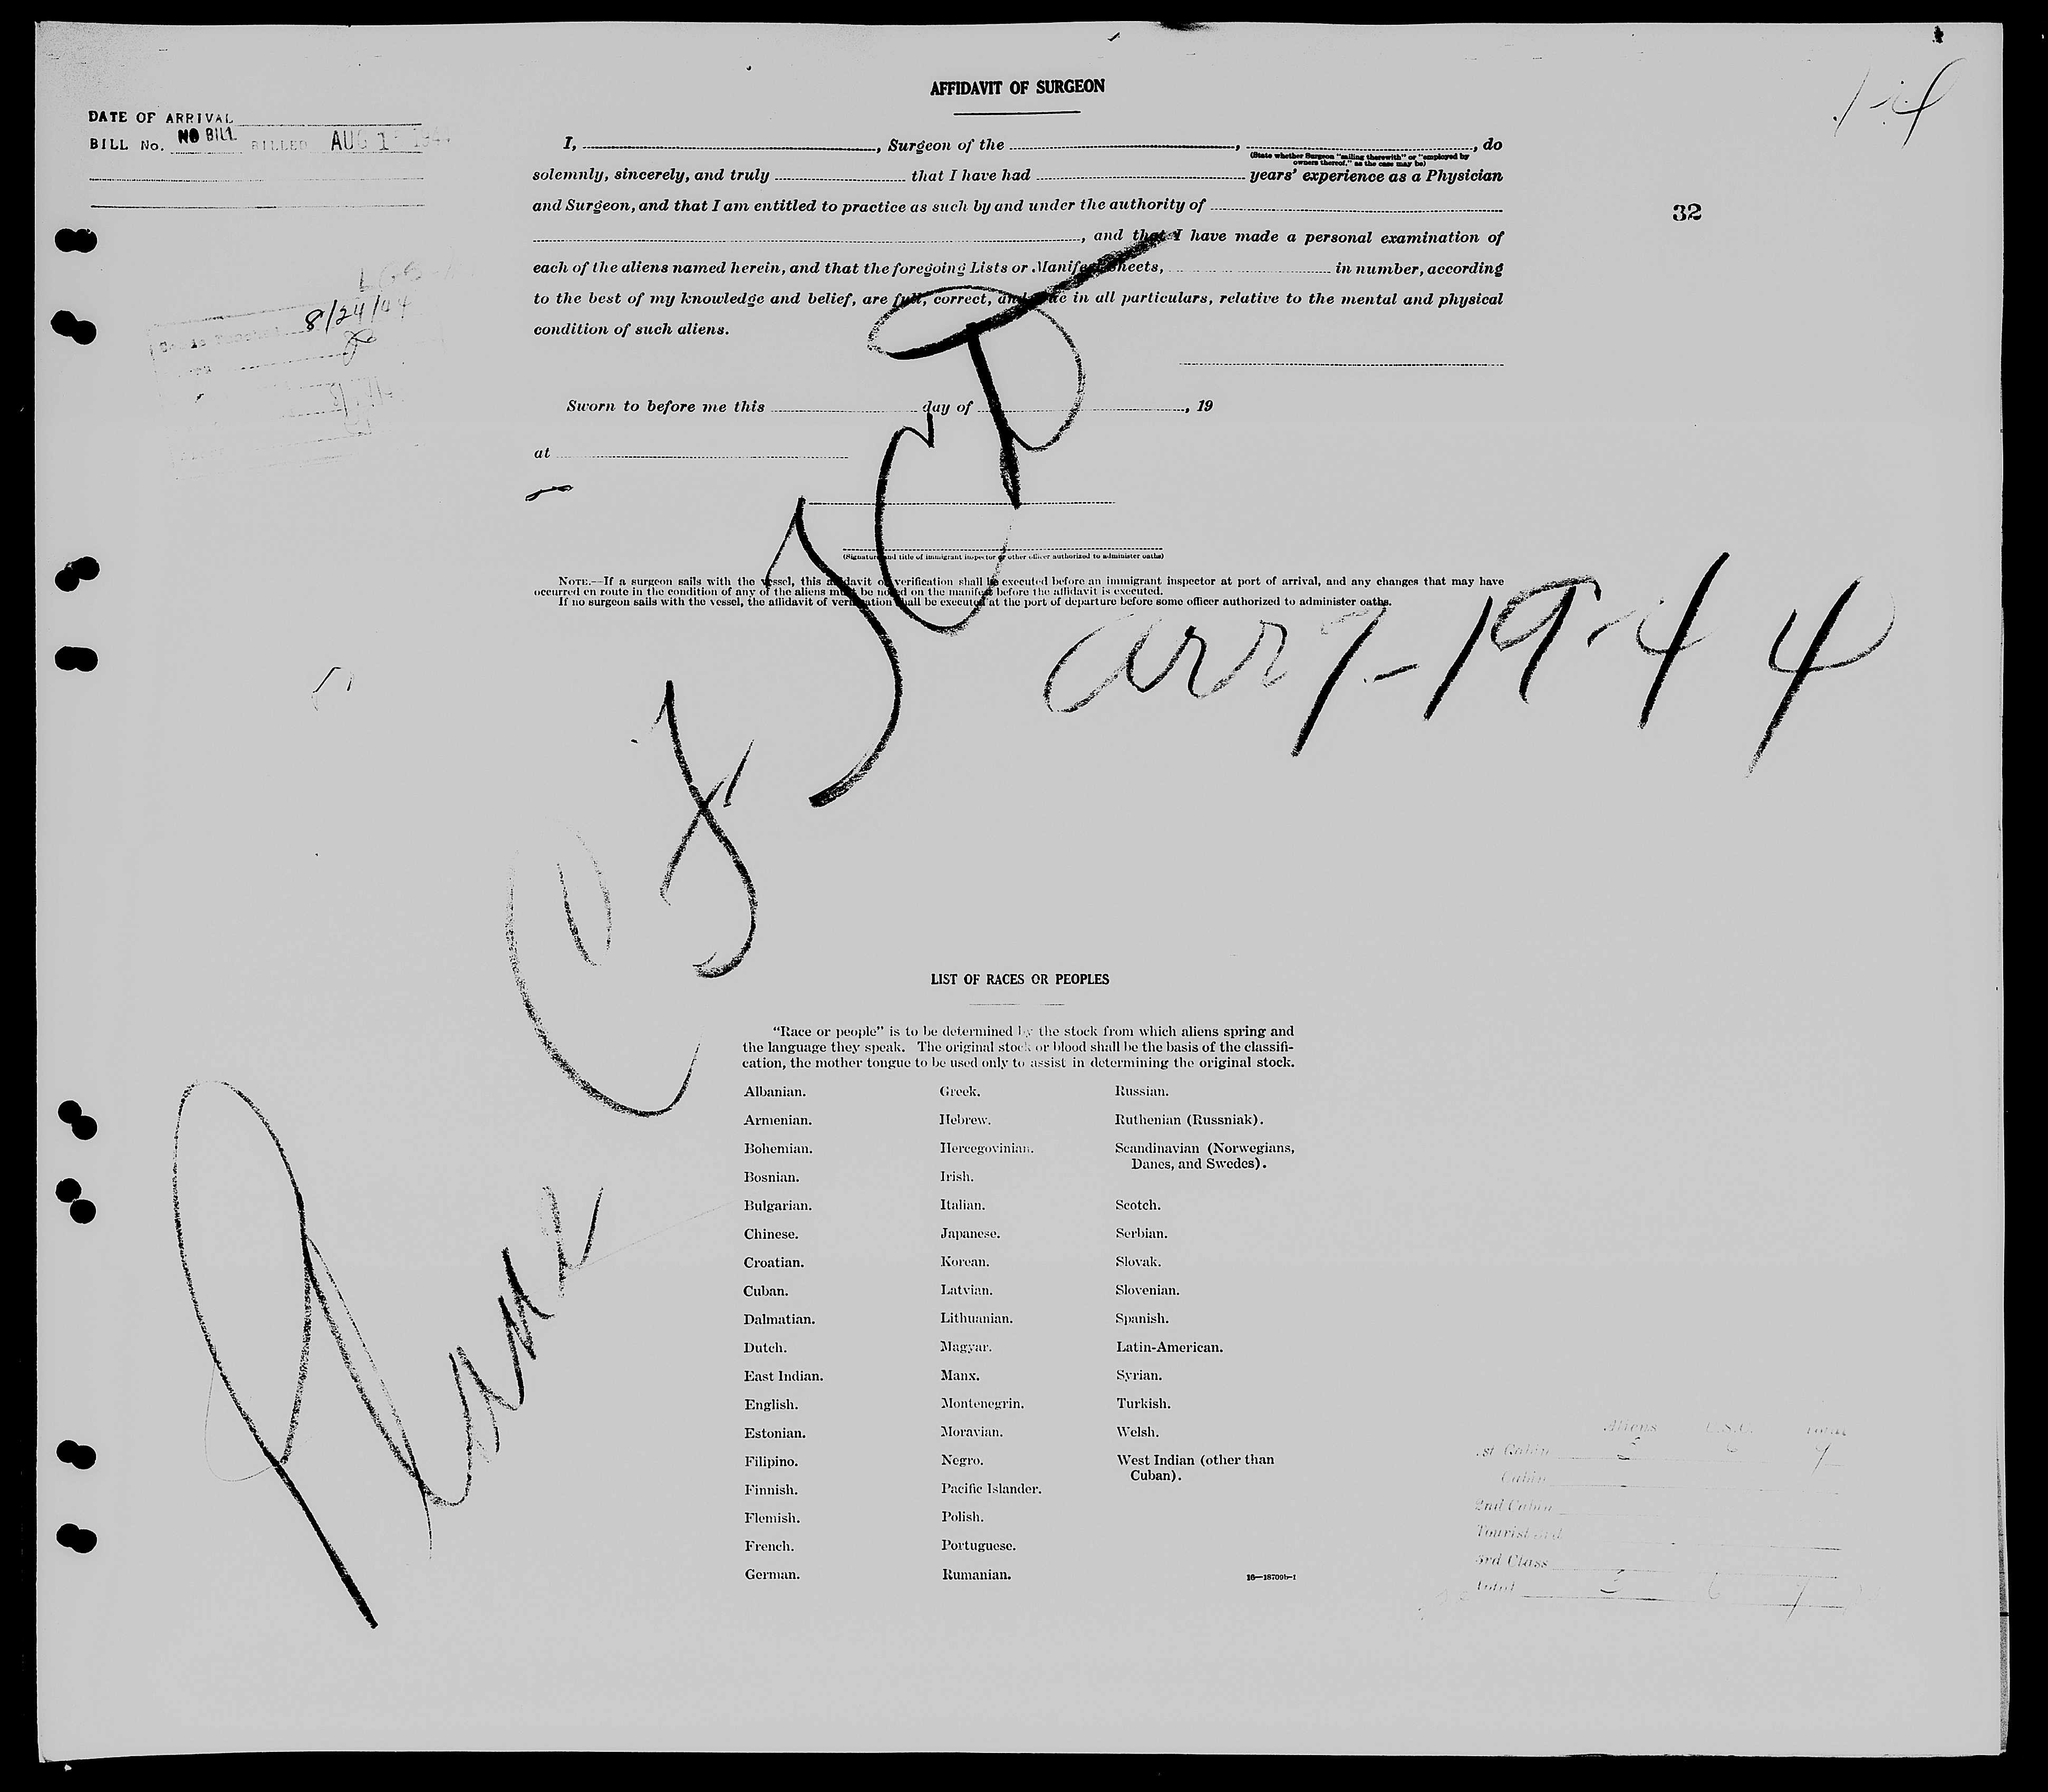 AFFIDAVIT OF SURGEON
DATE OF ARRIVAL
BILL No. NO BILL BILLED AUG 1
I, , Surgeon of the , , do
(State whether Surgeon "sailing therewith" or "employed by owners thereof," as the case may be)
solemnly, sincerely, and truly that I have had years' experience as a Physician
and Surgeon, and that I am entitled to practice as such by and under the authority of
32
, and that I have made a personal examination of
each of the aliens named herein, and that the foregoing Lists or Manifest Sheets, in number, according
to the best of my knowledge and belief, are full, correct, and true in all particulars, relative to the mental and physical
condition of such aliens.
8/24/44
Sworn to before me this day of , 19
at
(Signature and title of immigrant inspector or other officer authorized to administer oaths)
NOTE.—If a surgeon sails with the vessel, this affidavit of verification shall be executed before an immigrant inspector at port of arrival, and any changes that may have
occurred en route in the condition of any of the aliens must be noted on the manifest before the affidavit is executed.
If no surgeon sails with the vessel, the affidavit of verification shall be executed at the port of departure before some officer authorized to administer oaths.
arr 7-19-44
Plane
LIST OF RACES OR PEOPLES
"Race or people" is to be determined by the stock from which aliens spring and
the language they speak. The original stock or blood shall be the basis of the classifi-
cation, the mother tongue to be used only to assist in determining the original stock.
Albanian. Greek. Russian.
Armenian. Hebrew. Ruthenian (Russniak).
Bohemian. Hercegovinian. Scandinavian (Norwegians,
Danes, and Swedes).
Bosnian. Irish.
Bulgarian. Italian. Scotch.
Chinese. Japanese. Serbian.
Croatian. Korean. Slovak.
Cuban. Latvian. Slovenian.
Dalmatian. Lithuanian. Spanish.
Dutch. Magyar. Latin-American.
East Indian. Manx. Syrian.
English. Montenegrin. Turkish.
Estonian. Moravian. Welsh.
Filipino. Negro. West Indian (other than
Cuban).
Finnish. Pacific Islander.
Flemish. Polish.
French. Portuguese.
German. Rumanian.
16—18709b-1
Aliens U.S.C. Total
1st Cabin 3 6 9
Cabin
2nd Cabin
Tourist
3rd Class
Total 3 6 9